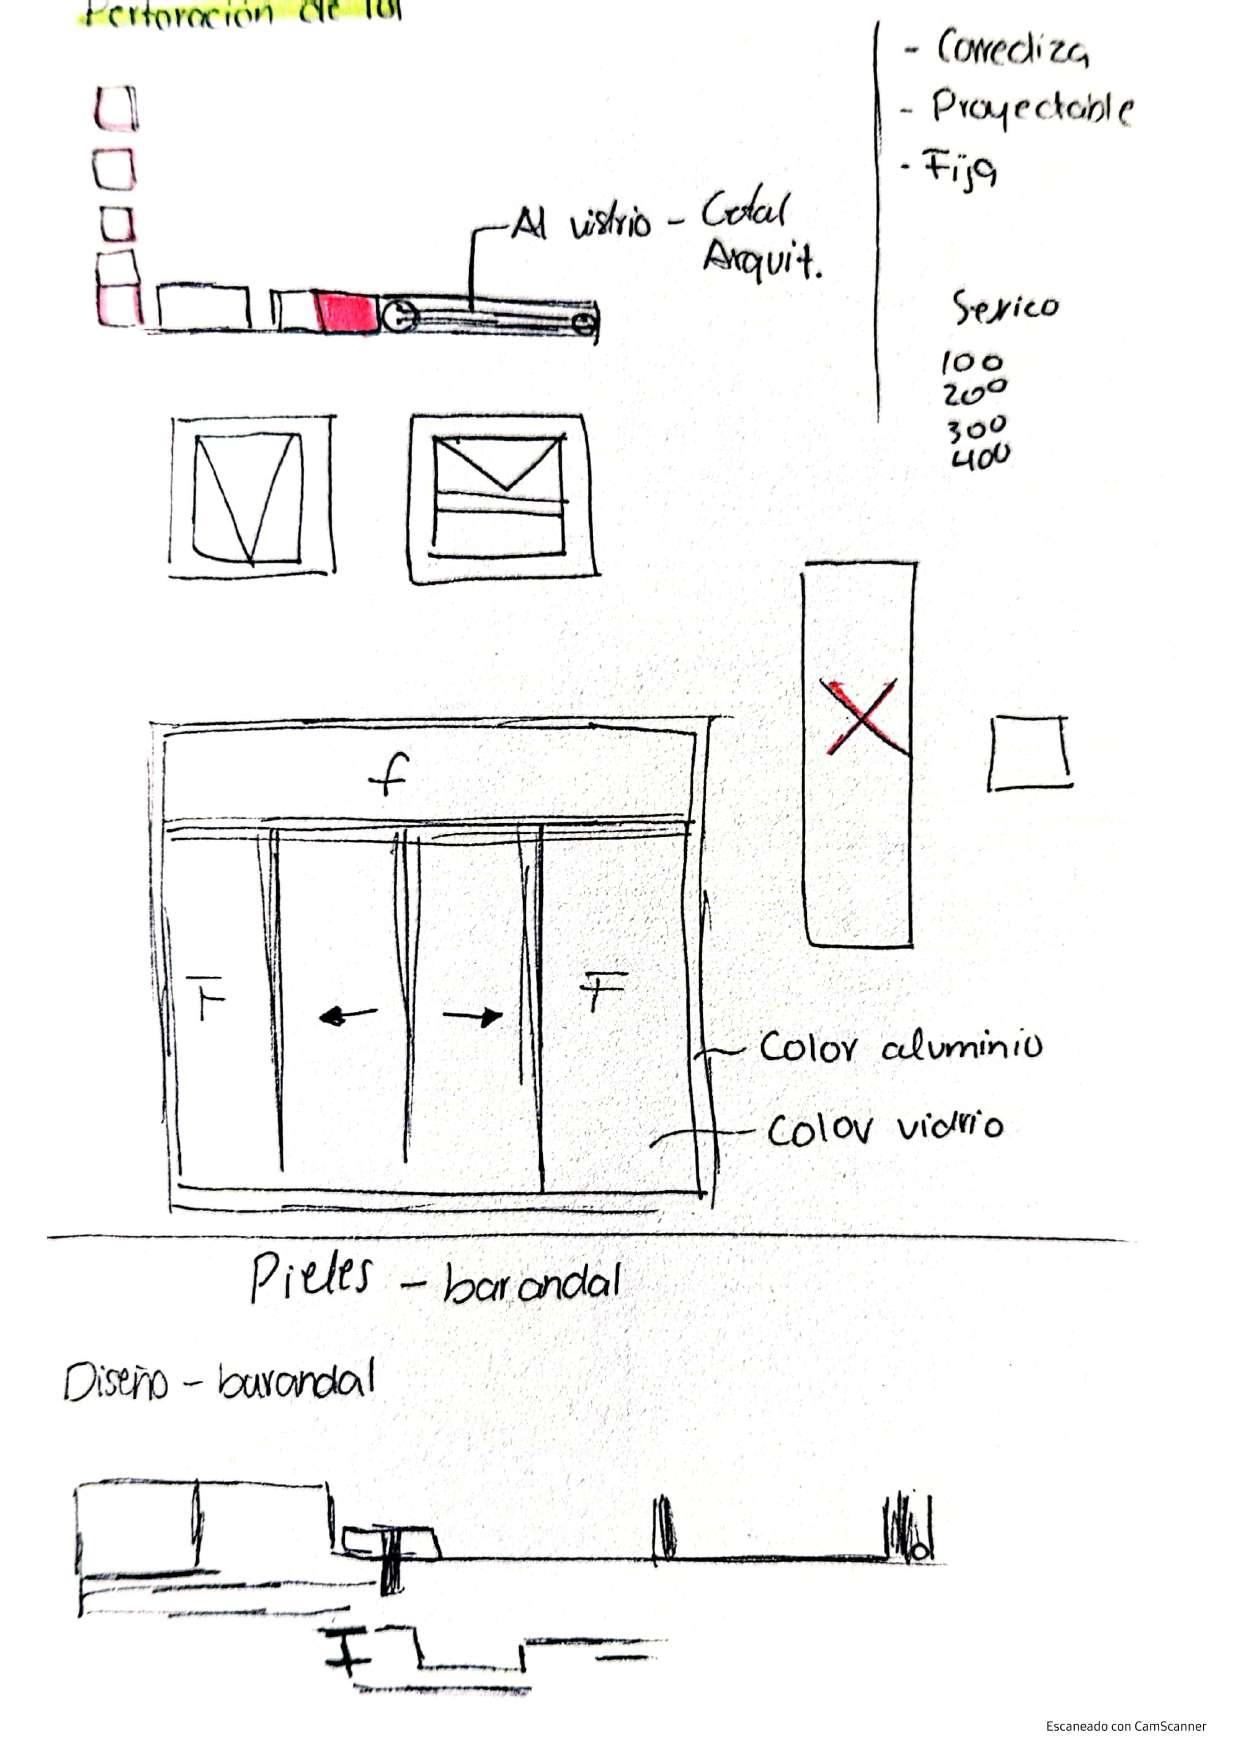 Perforación de tol
- Corrediza
- Proyectable
- Fija
Al vistrio - Cotal
Arquit.
Serico
100
200
300
400
f
F
F
Color aluminio
Color vidrio
Pieles - barandal
Diseño - barandal
Escaneado con CamScanner